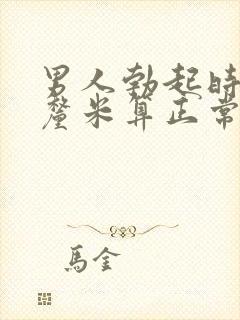 男人勃起时
釐米算正常
馬金